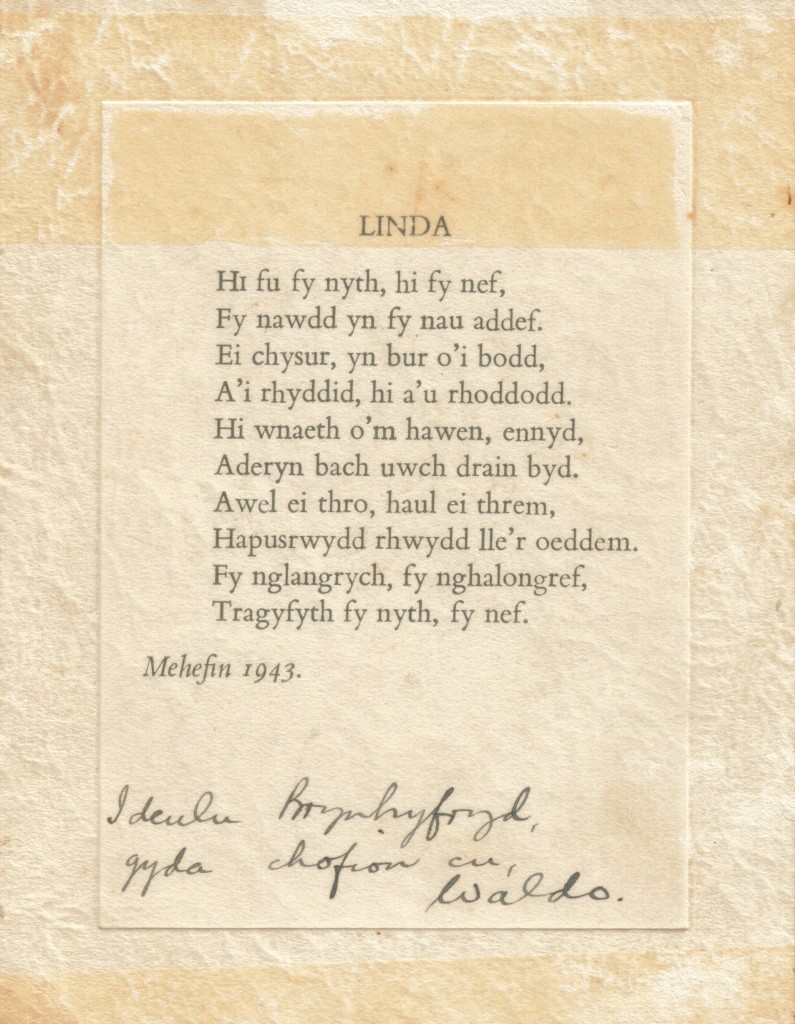 LINDA
HI fu fy nyth, hi fy nef,
Fy nawdd yn fy nau addef.
Ei chysur, yn bur o'i bodd,
A'i rhyddid, hi a'u rhoddodd.
Hi wnaeth o'm hawen, ennyd,
Aderyn bach uwch drain byd.
Awel ei thro, haul ei threm,
Hapusrwydd rhwydd lle'r oeddem.
Fy nglangrych, fy nghalongref,
Tragyfyth fy nyth, fy nef.
Mehefin 1943.
I deulu Brynhyfryd,
gyda chofion cu,
Waldo.